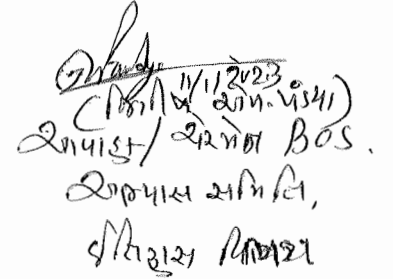 11/1/2023
( એમ. પંડ્યા)
અધ્યક્ષ/ ચેરમેન BOS.
અભ્યાસ સમિતિ,
ઈતિહાસ વિષય